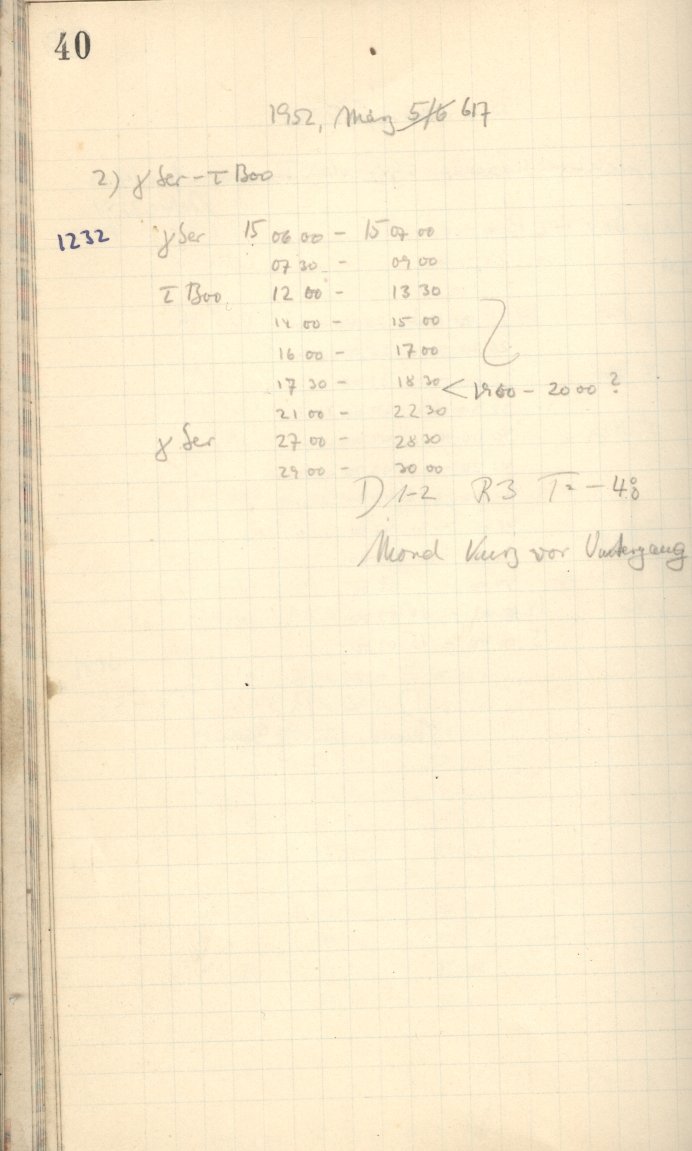 40
1952, März 5/6 6/7
2) γ Ser - τ Boo
1232 γ Ser 15 06 00 - 15 07 00
07 30 - 09 00
τ Boo 12 00 - 13 30
14 00 - 15 00
16 00 - 17 00
17 30 - 18 30 < 19 00 - 20 00 ?
21 00 - 22 30
γ Ser 27 00 - 28 30
29 00 - 30 00
D 1-2 R 3 T = -4°
Mond kurz vor Untergang